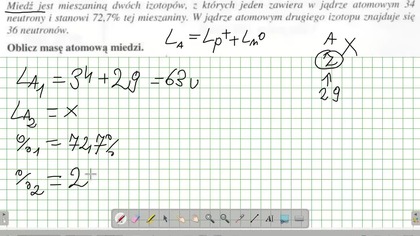 Miedź jest mieszaniną dwóch izotopów, z których jeden zawiera w jądrze atomowym 34
neutrony i stanowi 72,7% tej mieszaniny. W jądrze atomowym drugiego izotopu znajduje się
36 neutronów.
Oblicz masę atomową miedzi.
L_A = Lp⁺ + Ln⁰
A
Z X
↑
29
L_A₁ = 34 + 29 = 63 u
L_A₂ = x
%₁ = 72,7%
%₂ = 2